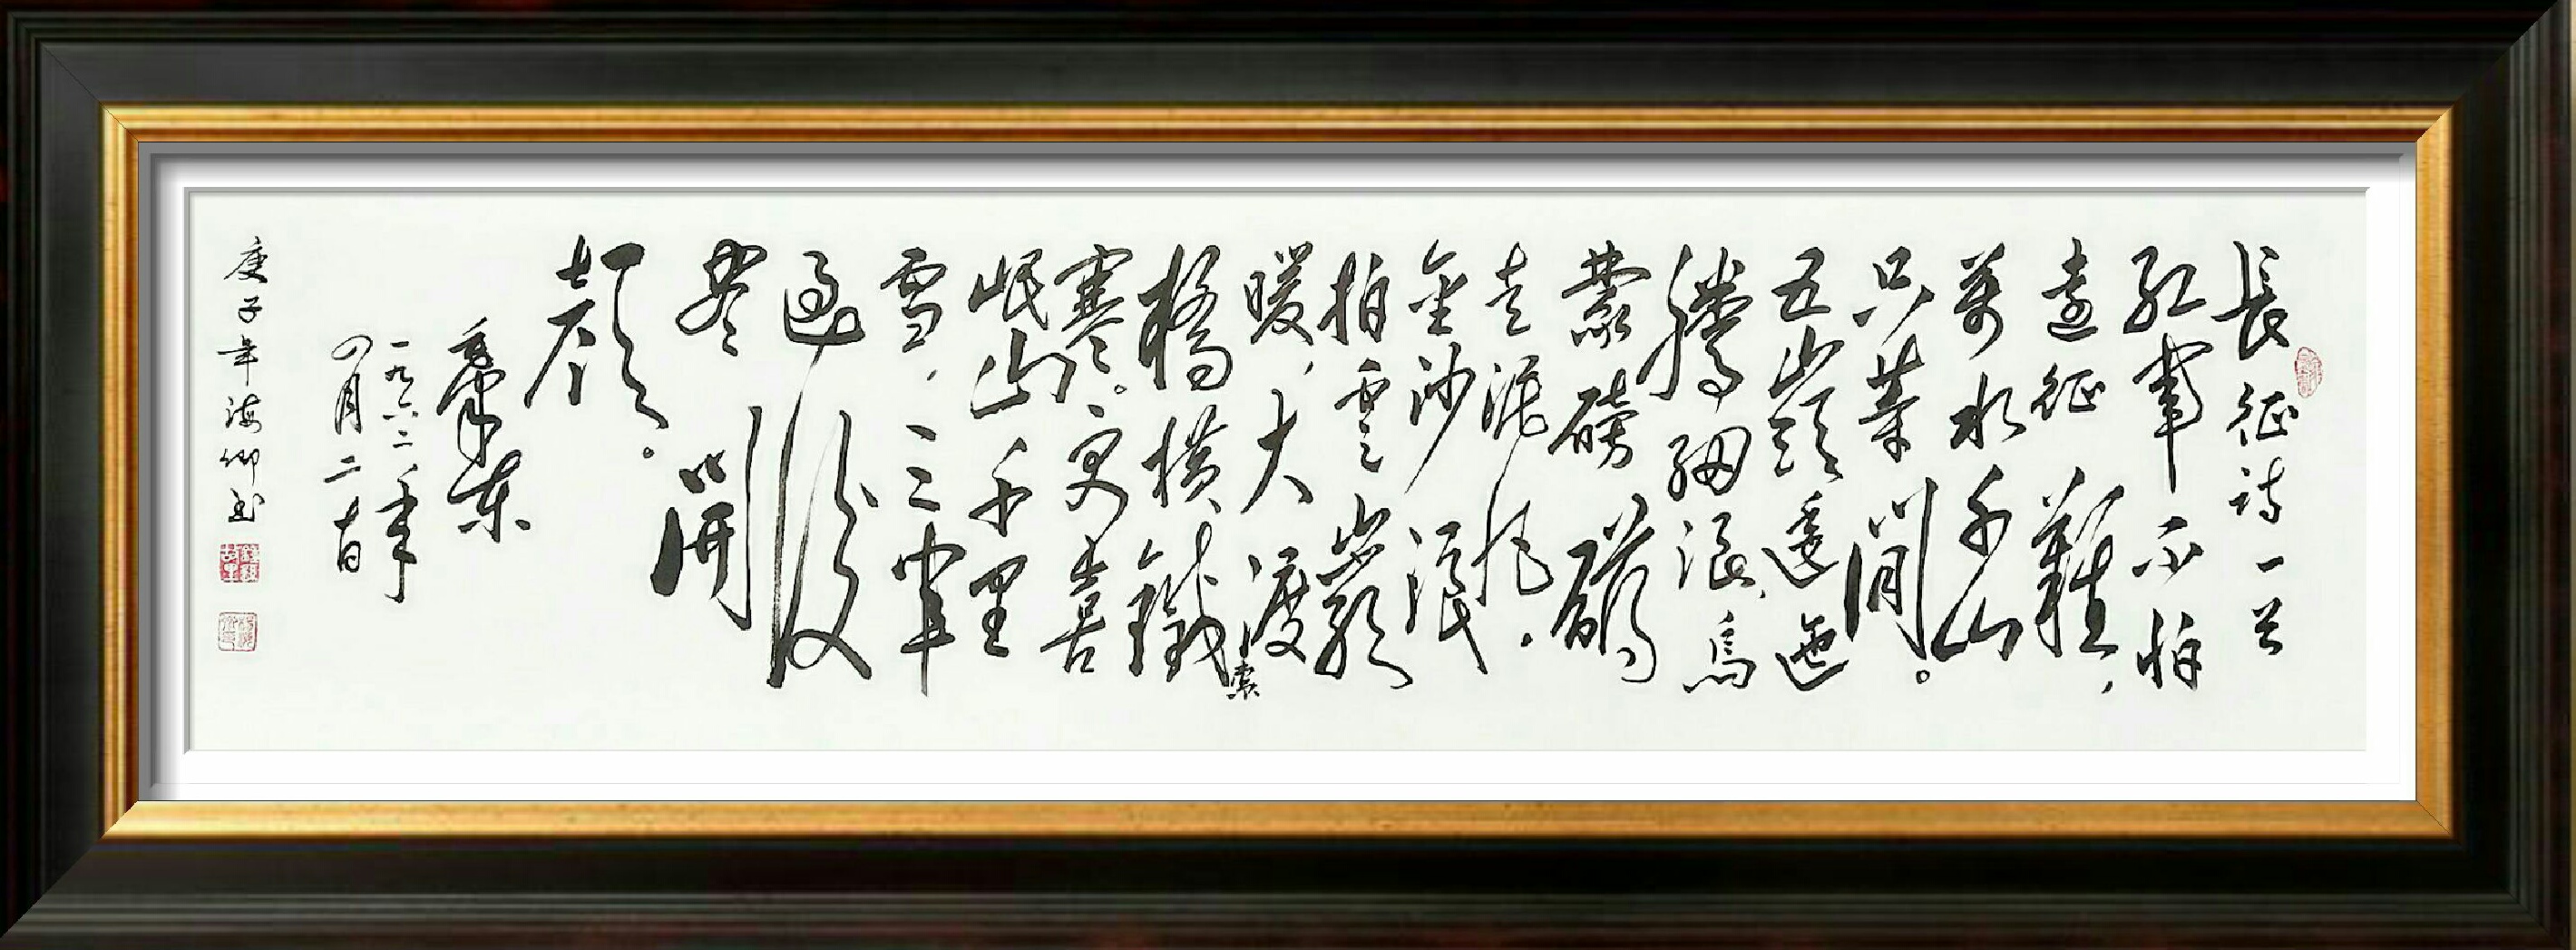 長征詩一首
紅軍不怕
遠征難，
萬水千山
只等閒。
五嶺逶迤
騰細浪，烏
蒙磅礴
走泥丸，
金沙浪
拍雲崖
暖，大渡
橋橫鐵索
寒。更喜
岷山千里
雪，三軍
過後
尽開
顏。
毛澤東
一九六二年
四月二十日
庚子年海卿书